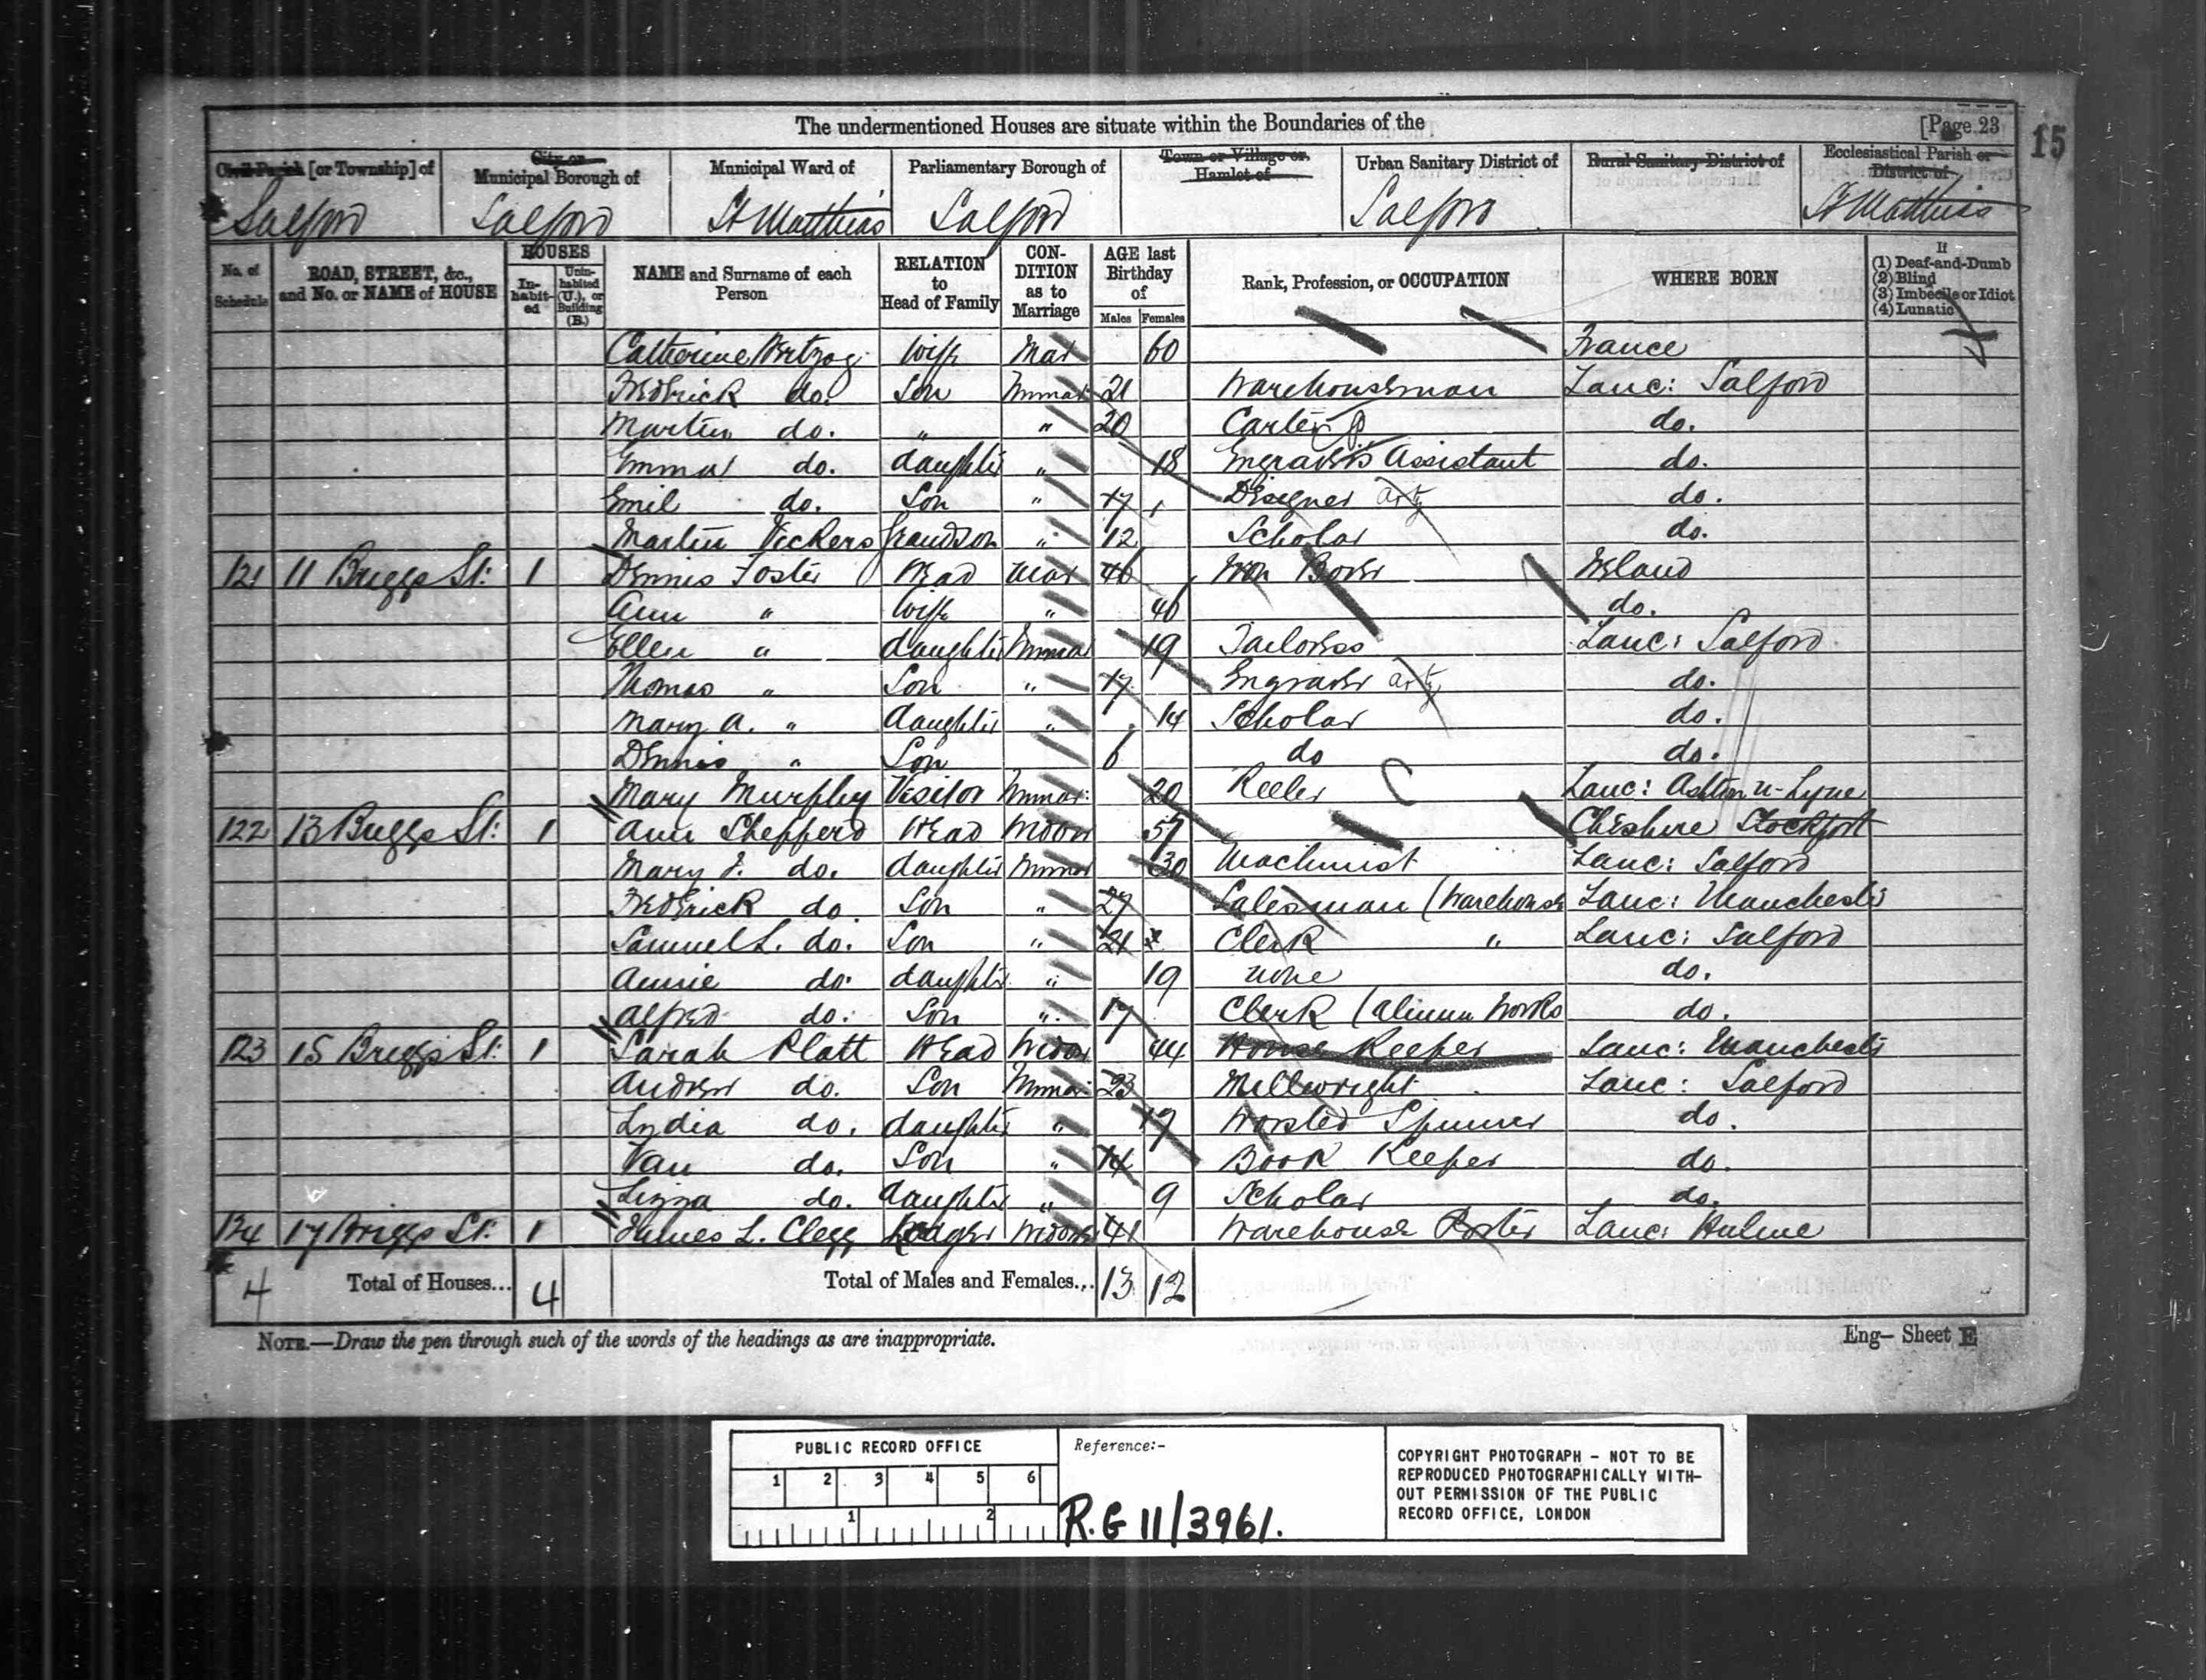 The undermentioned Houses are situate within the Boundaries of the [Page 23 15
Civil Parish [or Township] of City or Municipal Borough of Municipal Ward of Parliamentary Borough of Town or Village or Hamlet of Urban Sanitary District of Rural Sanitary District of Ecclesiastical Parish or District of
Salford Salford St Matthias Salford Salford St Matthias
No. of Schedule ROAD, STREET, &c., and No. or NAME of HOUSE HOUSES Inhabited Uninhabited (U.), or Building (B.) NAME and Surname of each Person RELATION to Head of Family CONDITION as to Marriage AGE last Birthday of Males Females Rank, Profession, or OCCUPATION WHERE BORN If (1) Deaf-and-Dumb (2) Blind (3) Imbecile or Idiot (4) Lunatic
Catherine Hertzog Wife Mar 60 France
Frederick do. Son Unmar 21 Warehouseman Lanc: Salford
Martin do. " " 20 Carter do.
Emma do. daughter " 18 Engraver's Assistant do.
Emil do. Son " 17 Designer do.
Martin Vickers Grandson " 12 Scholar do.
121 11 Briggs St: 1 Dennis Foster Head Mar 46 Iron Borer Ireland
Ann " Wife " 46 do.
Ellen " daughter Unmar 19 Tailoress Lanc: Salford
Thomas " Son " 17 Engraver do.
Mary A. " daughter " 14 Scholar do.
Dennis " Son 6 do do.
Mary Murphy Visitor Unmar: 20 Reeler Lanc: Ashton u-Lyne
122 13 Briggs St: 1 Ann Shepperd Head Widow 57 Cheshire Stockport
Mary J. do. daughter Unmar 30 Machinist Lanc: Salford
Frederick do. Son " 27 Salesman (Warehouse Lanc: Manchester
Samuel L. do. Son " 21 Clerk " Lanc: Salford
Annie do. daughter " 19 none do.
Alfred do: Son " 17 Clerk (Alinum Works do.
123 15 Briggs St: 1 Sarah Platt Head Widow 44 House Keeper Lanc: Manchester
Andrew do. Son Unmar 23 Millwright Lanc: Salford
Lydia do. daughter " 17 Worsted Spinner do.
Van do. Son " 14 Book Keeper do.
Lizza do. daughter " 9 Scholar do.
124 17 Briggs St: 1 James L. Clegg Lodger Widower 41 Warehouse Porter Lanc: Hulme
4 Total of Houses... 4 Total of Males and Females... 13 12
NOTE.—Draw the pen through such of the words of the headings as are inappropriate. Eng— Sheet E
PUBLIC RECORD OFFICE
1 2 3 4 5 6
1 2
Reference:-
R.G 11/3961.
COPYRIGHT PHOTOGRAPH - NOT TO BE
REPRODUCED PHOTOGRAPHICALLY WITH-
OUT PERMISSION OF THE PUBLIC
RECORD OFFICE, LONDON